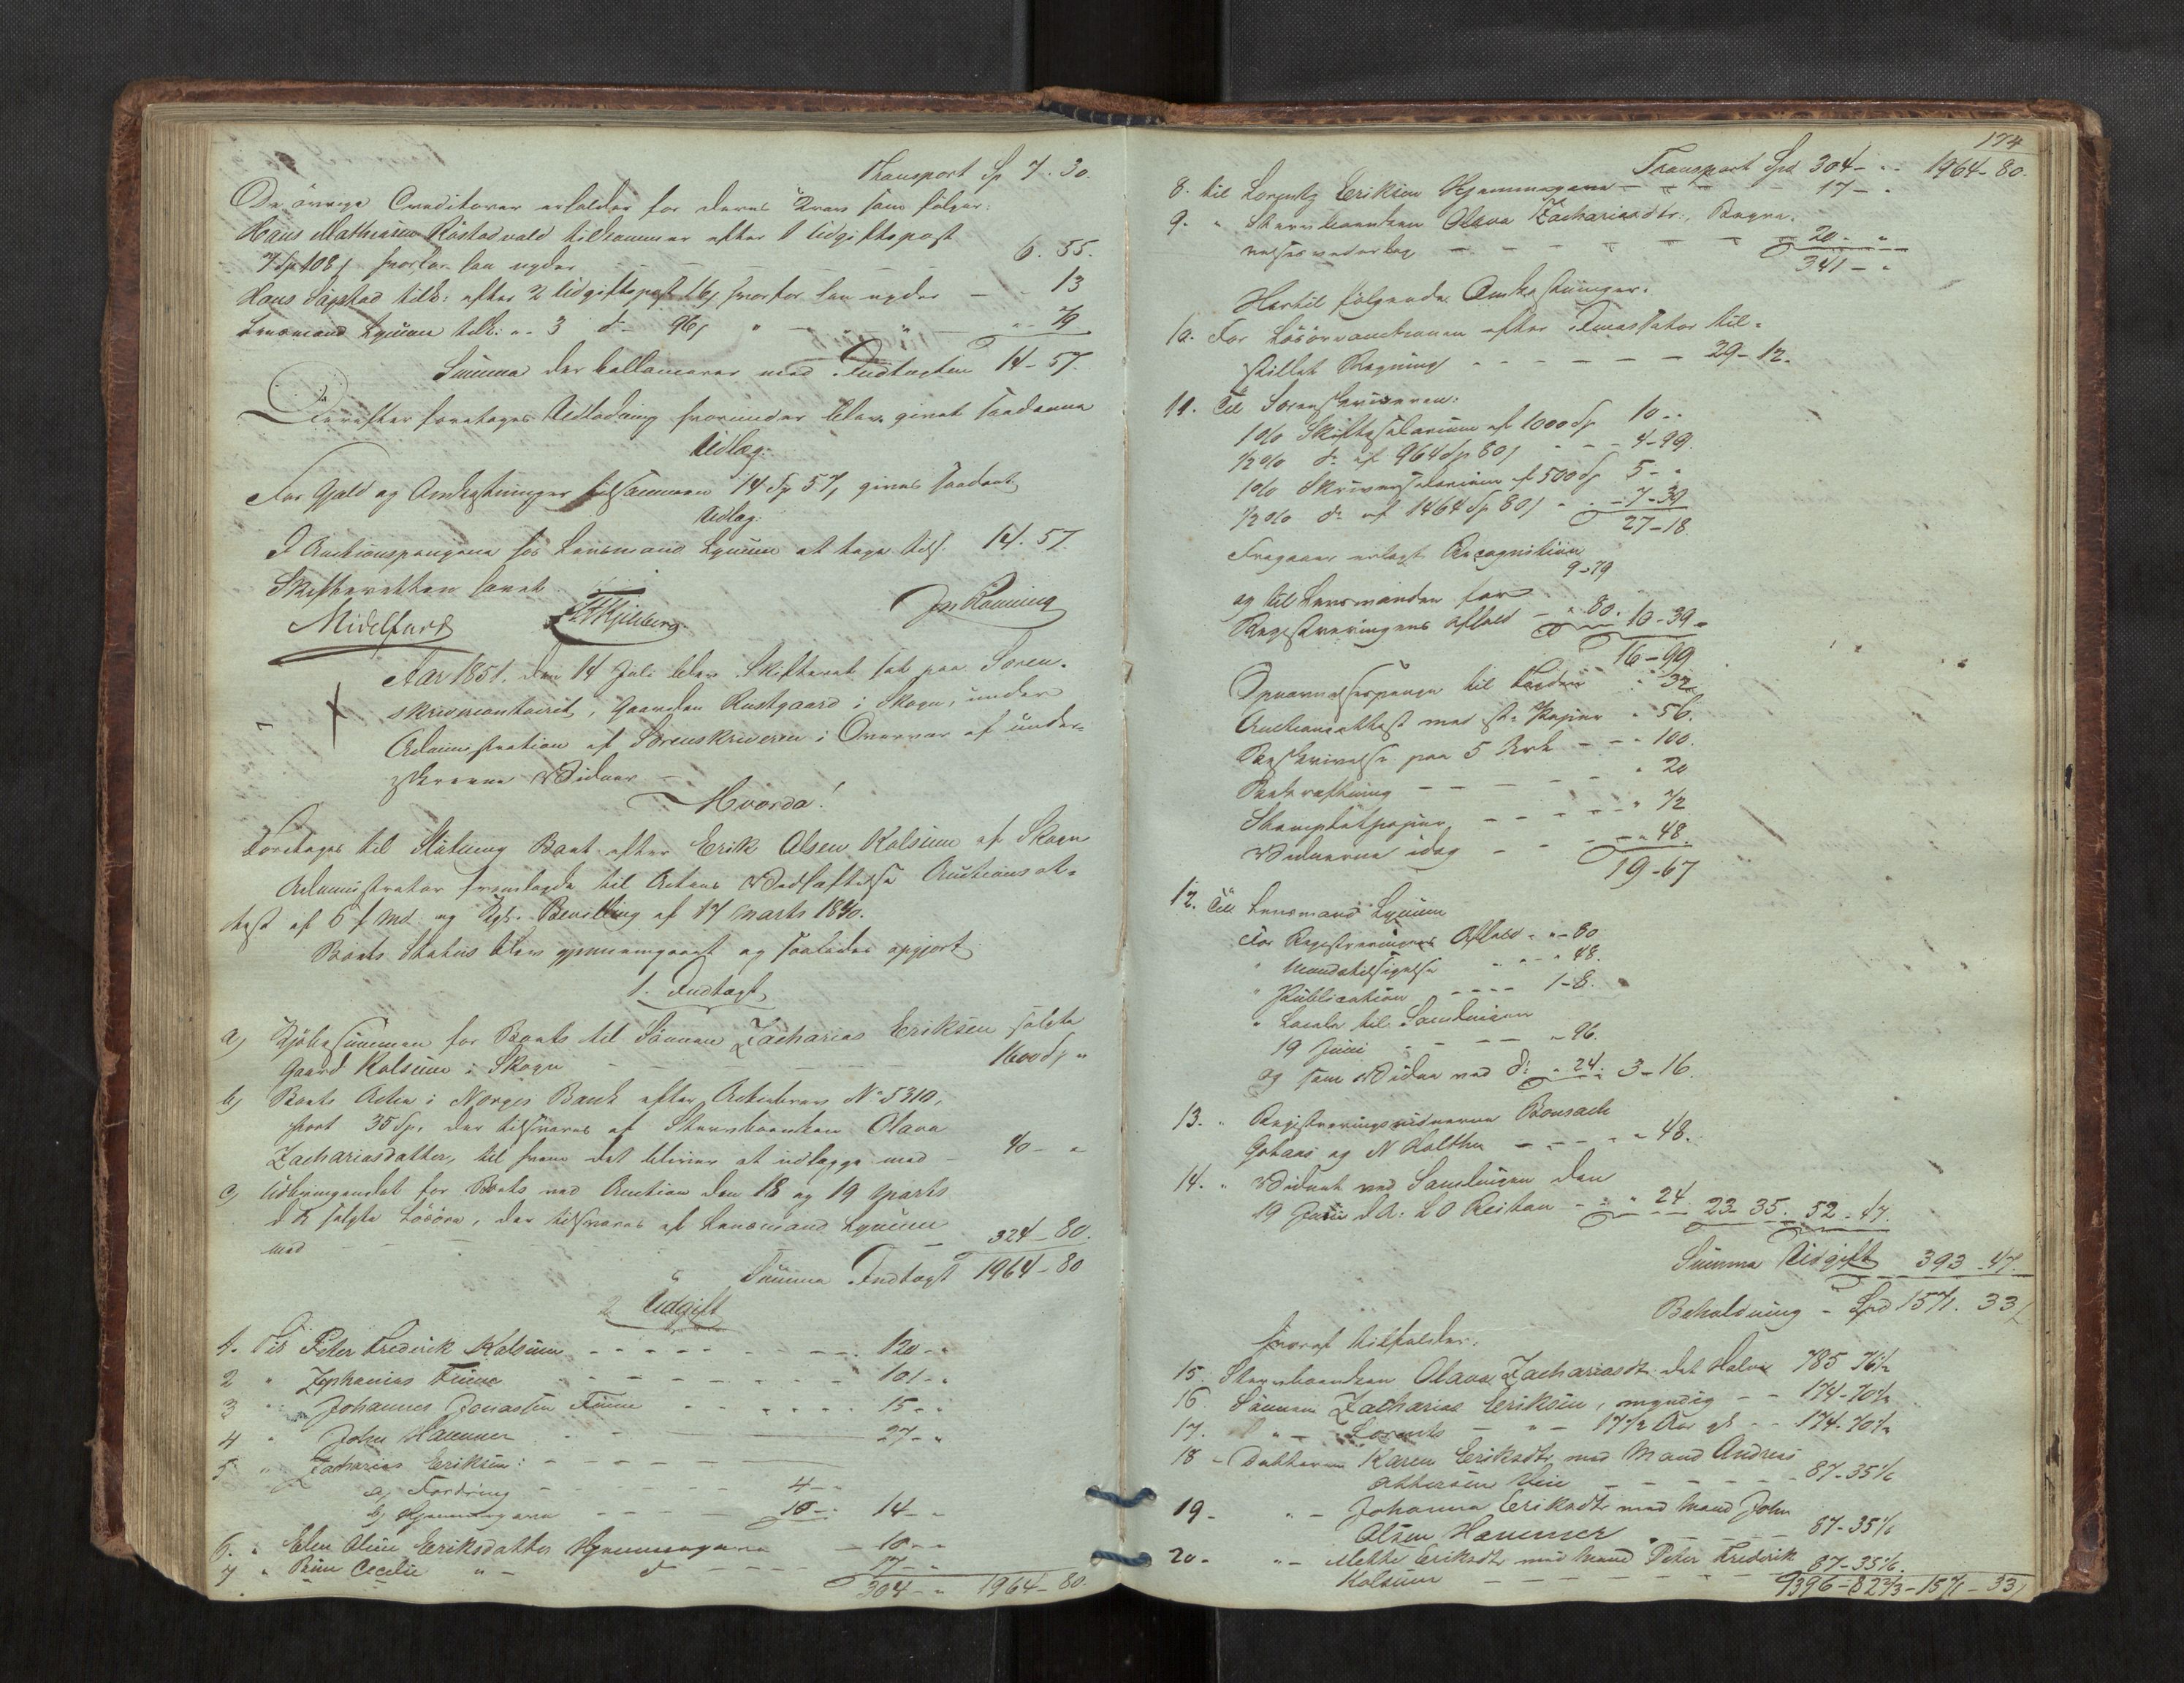 Transport Sp 7. 30.
De øvrige Creditorer erholder for deres Krav som følger:
Hans Mathiesen Röstadvald tilkommer efter 1 Udgiftspost
7 Sp 108 s hvorfor han nyder - - - - 6. 55.
Hans Sügstad tilk: efter 2 Udgiftspost 16 s hvorfor han nyder - - 13
Lensmand Lynum tilk: " 3 do 96 s " - " - " 79
Summa der ballancerer med Indtægten 14-57.
Derefter foretoges Udlodning hvorunder blev givet saadanne
Udlæg:
For Gjæld og Omkostninger tilsammen 14 Sp 57 s gives saadant
Udlæg:
I Auctionspengene hos Lensmand Lynum at tage tils. 14. 57.
Skifteretten hævet
Midelfart
Aar 1851. den 14 Juli blev Skifteret sat paa Soren-
skrivercontoiret, Gaarden Rustgaard i Skogn, under
Administration af Sorenskriveren i Overvær af under-
skrevne Vidner -
Hvorda!
Foretoges til Slutning Boet efter Erik Olsen Kolsum af Skogn
Administrator fremlagde til Actens Vedhæftelse Auctionsat-
test af 6 f. Md. og Kgl. Bevilling af 17 Marts 1840.
Boets Status blev gjennemgaaet og saaledes opgjort
1. Indtægt
a) Kjøbesummen for Boets til Sønnen Zacharias Eriksen solgte
Gaard Kolsum i Skogn - - - 1600 Sp "
b) Boets Actie i Norges Bank efter Actiebrev No 5310,
stort 35 Sp, der tilsvares af Stervboenken Olava
Zachariasdatter, til hvem det bliver at udlægge med - 40 - "
c) Udbringendet for Boets ved Auction den 18 og 19 Marts
d. A. solgte Løsøre, der tilsvares af Lensmand Lynum
med - - - 324-80.
Summa Indtægt 1964-80
2 Udgift
1. Til Peter Frederik Kolsum - - - - 120 - "
2 " Zephanias Finne - - - - 101 - "
3 " Johannes Jonassen Finne - - - - 15 - "
4 " John Hammer - - - 27 - "
5 " Zacharias Eriksen: - - - -
a) Fordring - - - - 4 - "
b) Hjemmegave - - - - 10 - " 14 - "
6. " Elen Oline Eriksdatter Hjemmegave - 10 - "
7 " Beren Cecilie " - do - - 17 - "
304 - " 1964-80.
174
Transport Spd 304 - " 1964-80.
8. til Lorents Eriksen Hjemmegave - - - 17 - "
9. " Stervboenken Olava Zachariasdtr., Begra-
velsesvederlag - - - - - 20 - "
341 - "
Hertil følgende Omkostninger.
10. For Løsøreauctionen efter Incassator til-
stillet Regning - - - - - 29-12.
11. Til Sorenskriveren:
1 0/0 Skiftesalarium af 1000 Sp 10 - "
1/2 0/0 do af 964 Sp 80 s - - 4-99.
1 0/0 Skriversalarium af 500 Sp 5 - "
1/2 0/0 do af 1464 Sp 80 s - 7-39
27-18.
Fragaaer erlagt Recognition
9-79
og til Lensmanden for
Registreringens Afhold - " 80. 10-39.
16-99
Opnævnelsespenge til Fogden " 32
Auctionsattest med st. Papir " 56.
Beskrivelse paa 5 Ark - - " 100.
Bekræftning - - - - " 20
Stemplet papir - - - - " 72
Vidnerne idag - - - " 48.
19-67
12. Til Lensmand Lynum
For Registreringens Afhold " - 80
" Mandstilsigelse - - " 48.
" Publication - - - 1-8.
" Locale til Samlingen
19 Juni - - - - " 96.
og som Vidne ved do " 24. 3-16.
13. " Registreringsvidnerne Bonsach
Gotaas og N Holthe - - - " 48.
14. " Vidnet ved Samlingen den
19 Juni d. A. L O Reitan - - " 24 23 35. 52-47.
Summa Udgift 393-47.
Beholdning - Spd 1571. 33 s
hvoraf tilfalder:
15. Stervboenken Olava Zachariasdtr det Halve 785 76 1/2
16 Sønnen Zacharias Eriksen, myndig - - 174-70 1/2
17. " - Lorents - " - 17 1/2 Aar gl - - 174-70 1/2
18 - Datteren Karen Eriksdtr med Mand Andreas
Ottersen Veie - - - - - 87-35 1/6
19 - " - Johanna Eriksdtr med Mand John
Olsen Hammer - - - - 87-35 1/6
20 - " - Mette Eriksdtr med Mand Peter Frederik
Kolsum - - - - - 87-35 1/6.
1396-82 2/3 - 1571-33 s